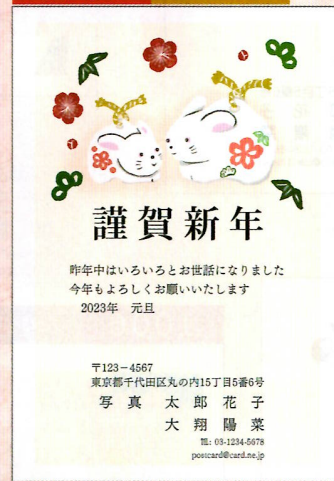 謹賀新年
昨年中はいろいろとお世話になりました
今年もよろしくお願いいたします
2023年 元旦
〒123-4567
東京都千代田区丸の内15丁目5番6号
写真 太郎花子
大翔陽菜
TEL: 03-1234-5678
postcard@card.ne.jp